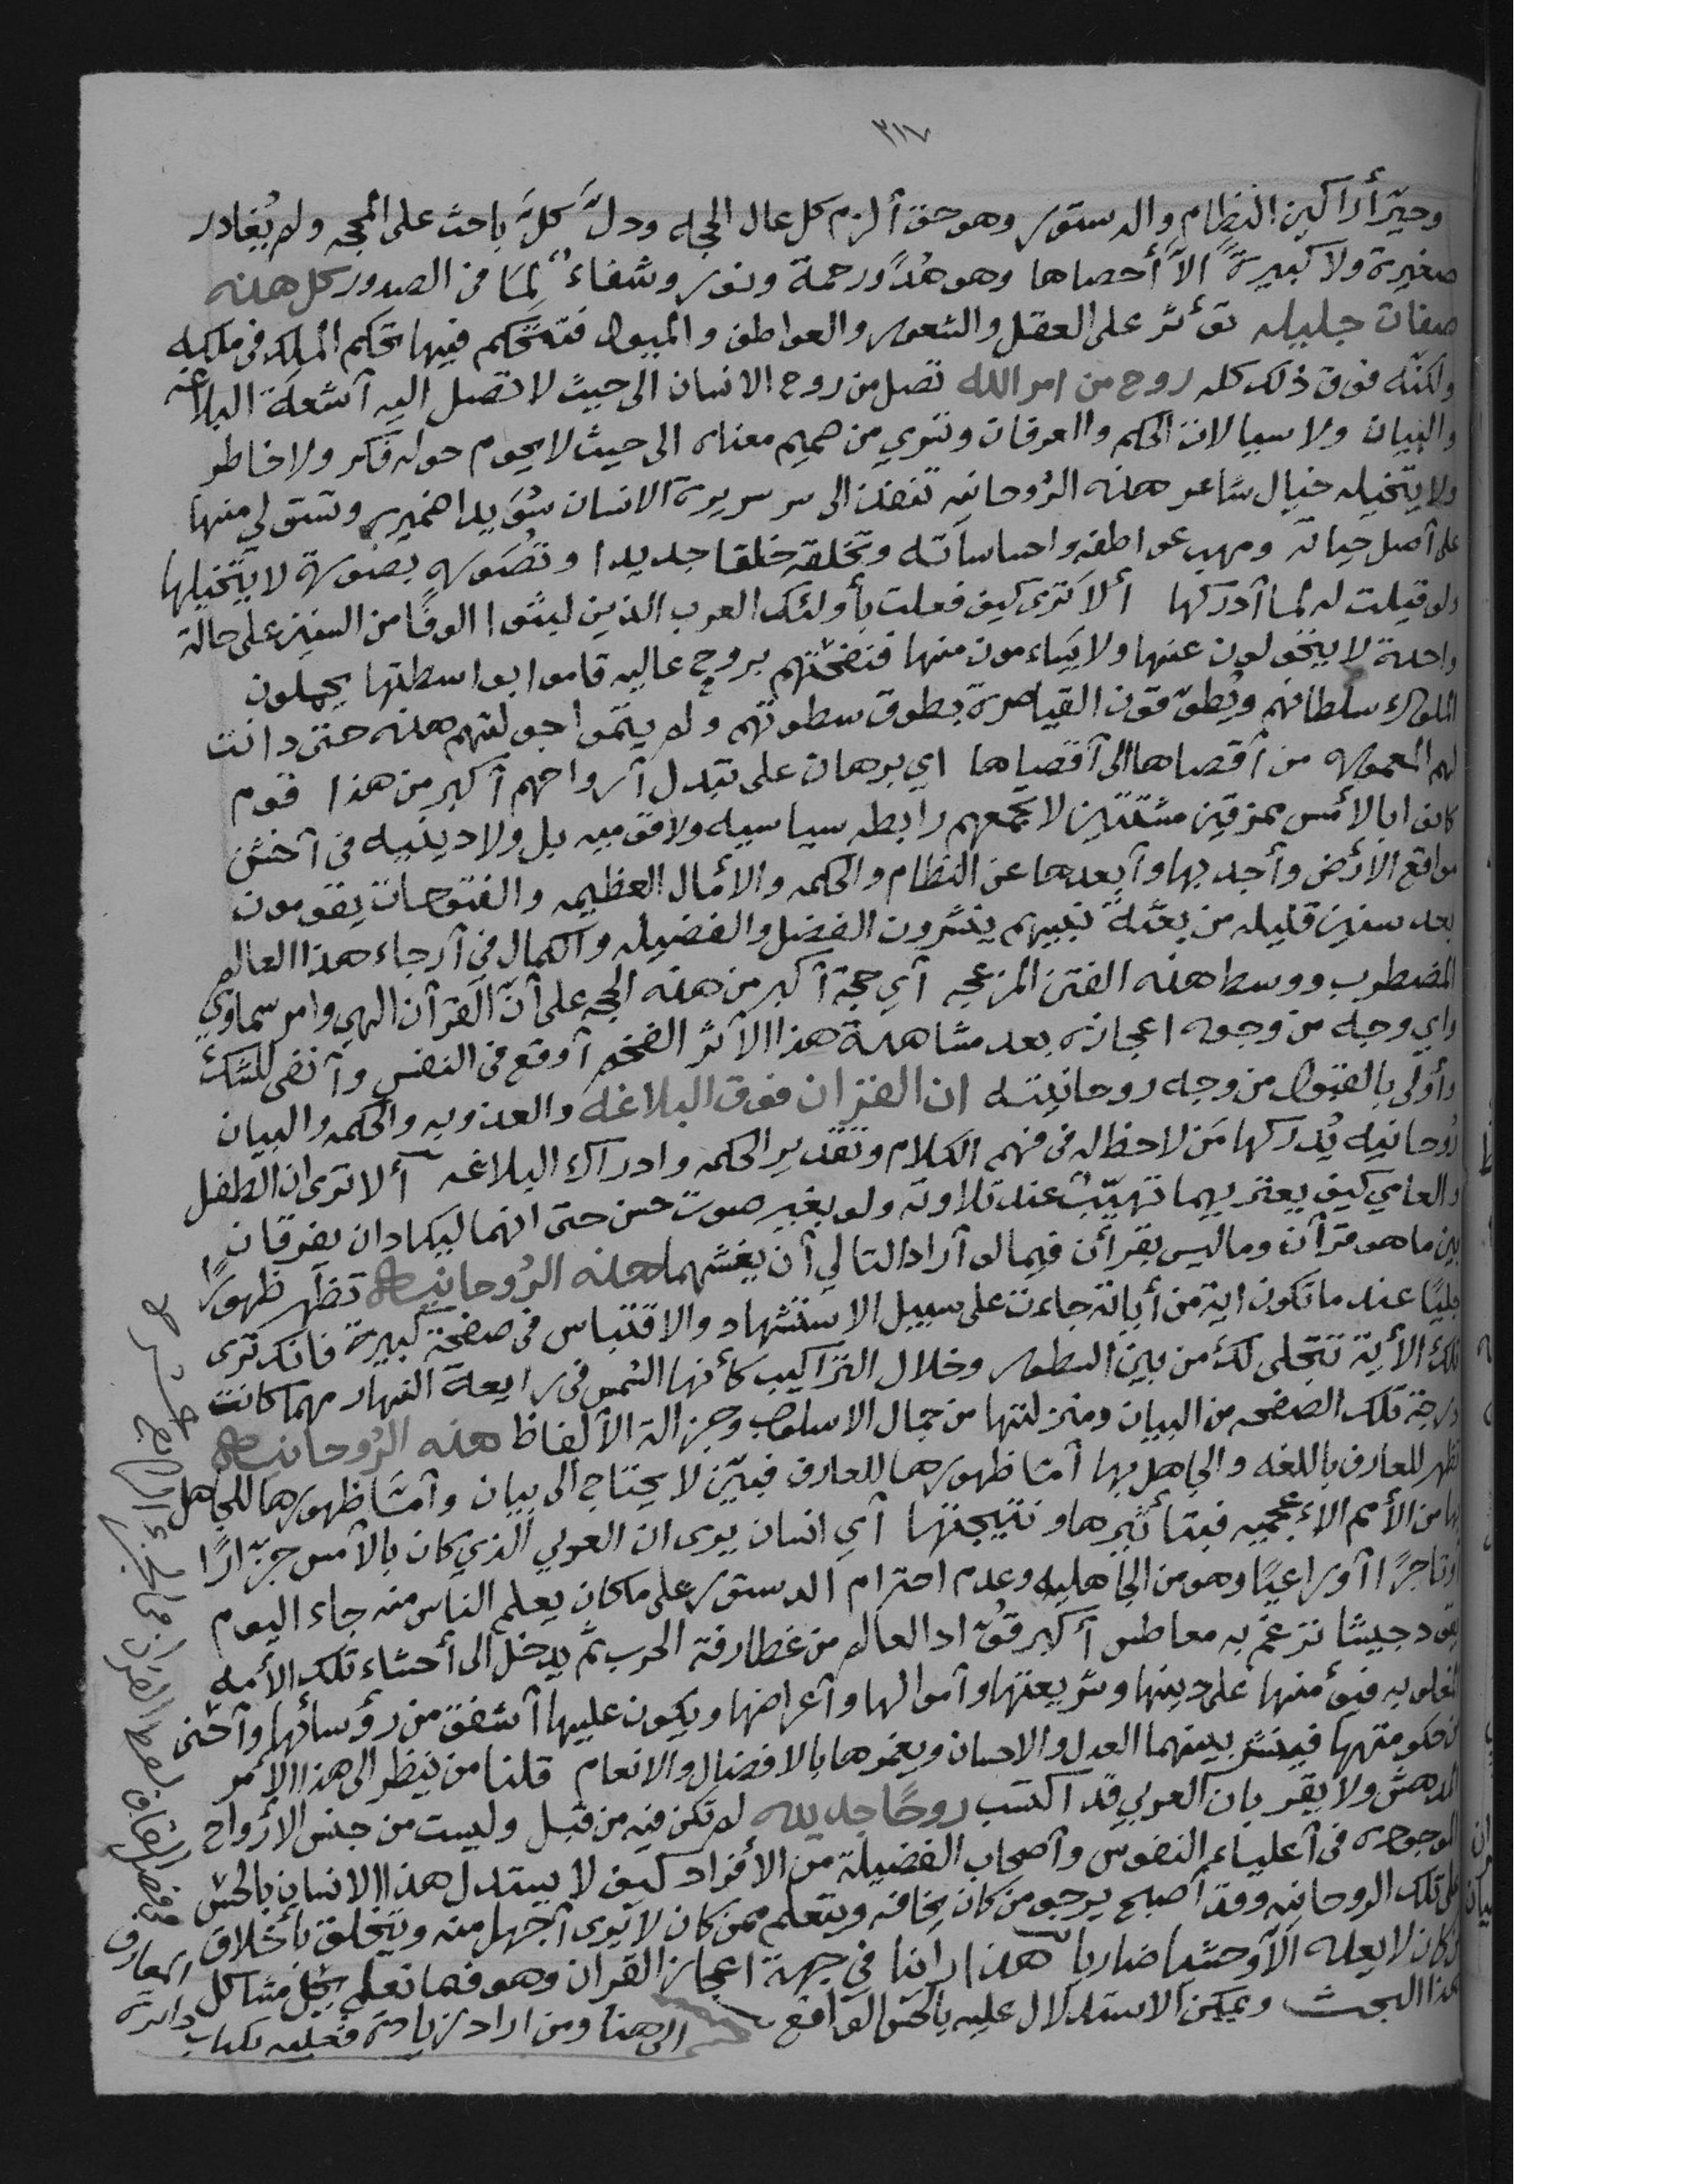 ٣١٧
وحيّر أراكين النظام والدستور وهو حق ألزم كل عال الحجه ودلّ كلَّ باحث على المحجه ولم يُغادر
صغيرة ولا كبيرةً الاّ أحصاها وهو هُدً ورحمة ونور وشفاءٌ لِمَا فى الصدور كل هذه
صفات جليله تؤثر على العقل والشعور والعواطف والميول فتتحكم فيها تحكم الملك فى ملكه
ولكنّه فوق ذلك كله روح من امر الله تصل من روح الانسان الى حيث لا تصل اليه آشعة البلاغه
والبيان ولا سيالات الحكم والعرفان وتسري من صميم معناه الى حيث لا يحوم حوله فكر ولا خاطر
ولا يتخيله خيال شاعر هذه الرُوحانيه تنفذ الى سر سريرة الانسان سُوَيدا ضميره وتستولي منها
على آصل حياته ومهب عواطفه واحساساته وتخلقه خلقا جديدا وتُصَوره بصُورة لا يتخيلها
ولو قيلت له لما آدركها ألا ترى كيف فعلت بأولئك العرب الذين لبثوا الوفًا من السنين على حالة
واحدة لا يتحولون عنها ولا يَساءمون منها فنضحتهم بروح عاليه قاموا بواسطتها يجهلون
الملوك سُلطانهم ويُطوّقون القياصرة بطوق سطوتهم ولم يتمّوا جولتهم هذه حتى دانت
لهم المعموره من آقصاها الى آقصاها اي برهان على تبدل آرواحهم آكبر من هذا قوم
كانوا بالأمس ممزقين مشتتين لا تجمعهم رابطه سياسيه ولا قوميه بل ولا دينيه فى آخشن
مواقع الأرض وأجدبها وآبعدها عن النظام والحكمه والأمال العظيمه والفتوحات يقومون
بعد سنين قليله من بعثة نبيهم ينشرون الفضل والفضيله والكمال في آرجاء هذا العالم
المضطرب ووسط هذه الفتن المزعجه آي حجة آكبر من هذه الحجه على أنّ القرآن الهي وامر سماوي
واي وجه من وجوه اعجازه بعد مشاهدة هذا الآثر الضخم آوقع فى النفس وآنفى للشك
وأولى بالقبول من وجه روحانيته ان القران فوق البلاغه والعذوبه والحكمه والبيان
رُوحانيه يُدركها مَن لا حظ له فى فهم الكلام وتقدير الحكمه وادراك البلاغه ألا ترى ان الطفل
والعامي كيف يعتريهما تهيّبٌ عند تلاوته ولو بغير صوت حسن حتى انهما ليكادان يفرقان
بين ما هو قرآن وما ليس بقرأن فيما لو آراد التالي آن يغشهما هذه الرُوحانيه تظهر ظهورًا
جليًا عندما تكون اية من أياته جاءت على سبيل الاستشهاد والاقتباس فى صفحة كبيرة فانك ترى
تلك الأية تتجلى لك من بين السطور وخلال التراكيب كأنها الشمس فى رابعة النهار مهما كانت
درجة تلك الصفحه من البيان ومنزلتها من جمال الاسلوب وجزالة الألفاظ هذه الرُوحانيه
تظهر للعارف باللغه والجاهل بها آمّا ظهورها للعارف فبيّن لا يحتاج الى بيان وآمّا ظهورها للجاهل
بها من الأمم الاعجميه فبتأثيرها ونتيجتها آي انسان يرى ان العربي الذي كان بالأمس جزّارًا
أوتاجرًا آو راعيًا وهو من الجاهليه وعدم احترام الدستور على ما كان يعلم الناس منه جاء اليوم
يقود جيشا نزعم به معاطس آكبر قُوّاد العالم من غطارفة الحرب ثم يدخل الى أحشاء تلك الأمه
المغلوبه فيؤمنها على دينها وشريعتها وآموالها وآعراضها ويكون عليها آشفق من رؤسائها وآحنى
من حكومتها فينشر بينهما العدل والاحسان ويغمرها بالافضال والانعام قلنا من ينظر الى هذا الأمر
المدهش ولا يقر بان العربي قد اكتسب روحًا جديده لم تكن فيه من قبل وليست من جنس الأرواح
الموجوده فى آعلياء النفوس وآصحاب الفضيلة من الأفراد كيف لا يستدل هذا الانسان بالحس
على تلك الروحانيه وقد آصبح يرجو من كان يخافه ويتعلم ممن كان لا يرى آجهل منه ويتخلق بأخلاق
من كان لا يعده الاّ وحشيا ضاريا هذا رآينا في جهة اعجاز القران وهو فيما نعلم يحلّ مشاكل
هذا البحث ويمكن الاستدلال عليه بالحس الواقع الى هنا ومن اراد زيادة فعليه بكتاب دائرة
المعارف فى فصل القاف لفظ القران فى الجزء الرابع عشر